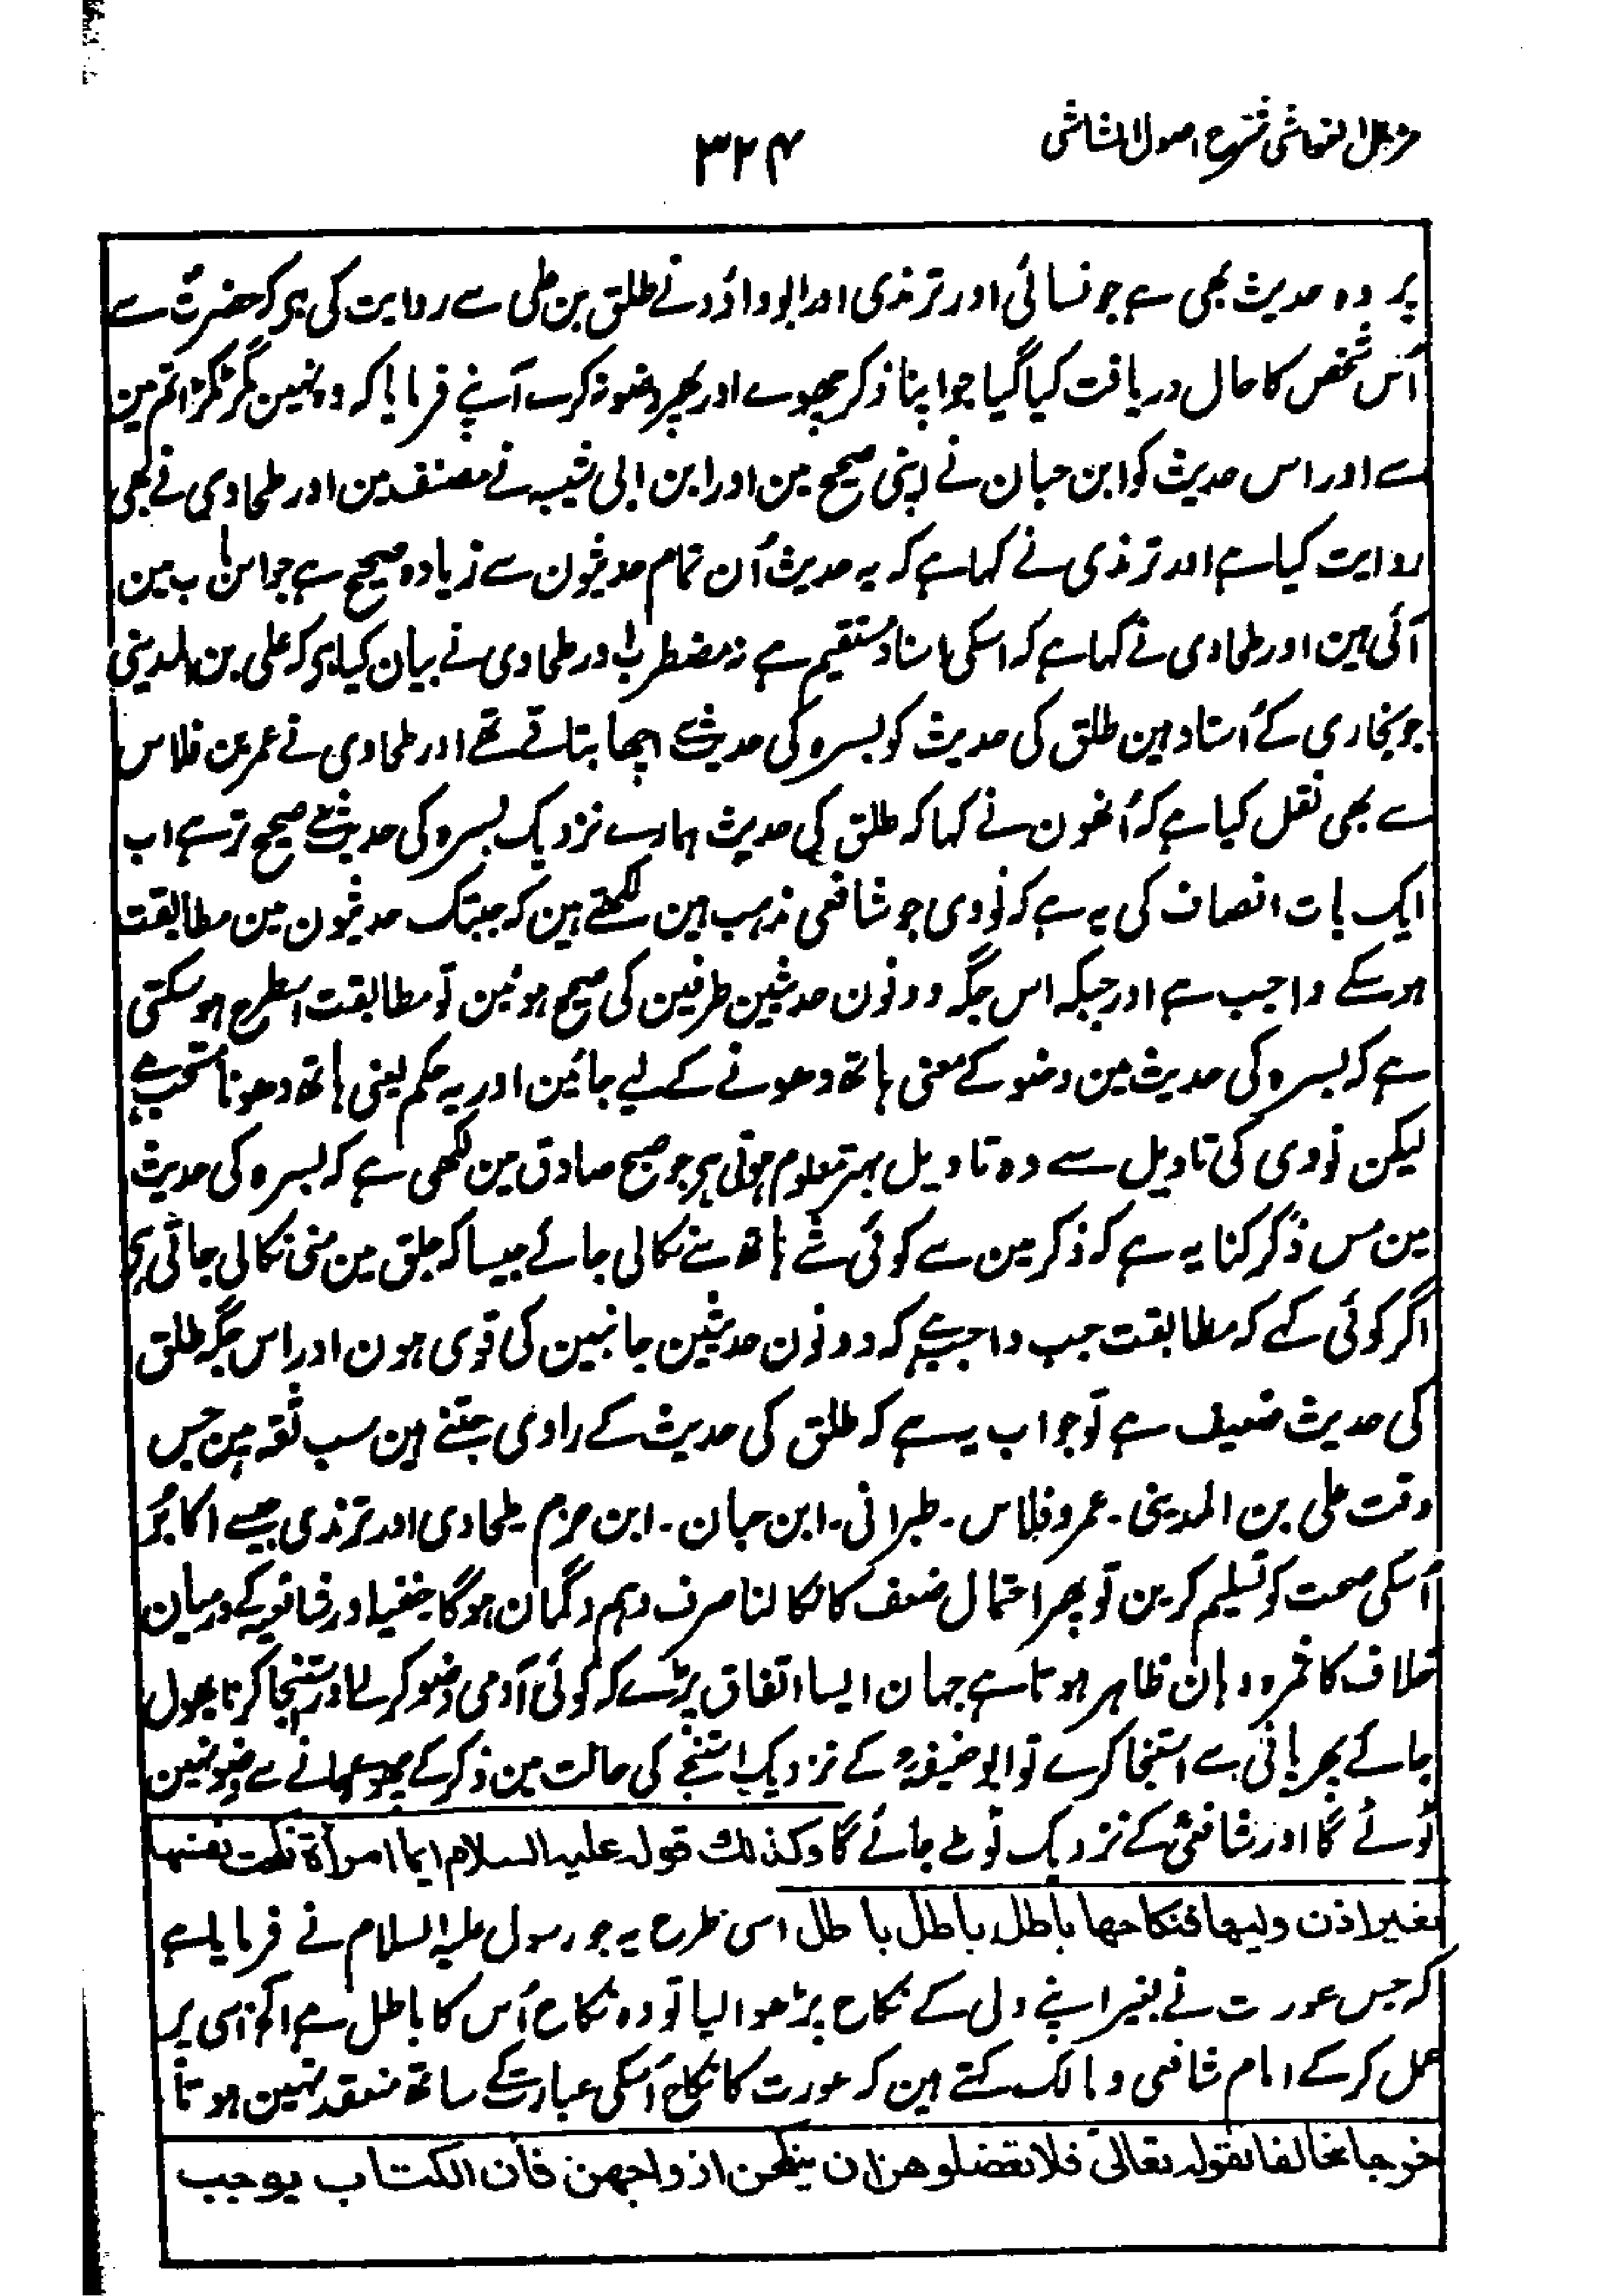 مزیل الغواشی شرح اصول الشاشی
۳۲۴
پر وہ حدیث بھی ہے جو نسائی اور ترمذی اور ابو داؤد نے طلق بن علی سے روایت کی ہو کہ حضرتؐ سے
اُس شخص کا حال دریافت کیا گیا جو اپنا ذکر چھوے اور پھر وضو نہ کرے آپنے فرمایا کہ وہ نہین مگر ٹکڑا تم مین
سے اور اس حدیث کو ابن حبان نے اپنی صحیح مین اور ابن ابی شیبہ نے مصنف مین اور طحاوی نے بھی
روایت کیا ہے اور ترمذی نے کہا ہے کہ یہ حدیث اُن تمام حدیثون سے زیادہ صحیح ہے جو اس باب مین
آئی ہین اور طحاوی نے کہا ہے کہ اسکی اسناد مستقیم ہے نہ مضطرب اور طحاوی نے بیان کیا ہو کہ علی بن المدینی
جو بخاری کے اُستاد ہین طلق کی حدیث کو بسرہ کی حدیث سے اچھا بتاتے تھے اور طحاوی نے عمر بن فلاس
سے بھی نقل کیا ہے کہ اُنھون نے کہا کہ طلق کی حدیث ہمارے نزدیک بسرہ کی حدیث سے صحیح تر ہے اب
ایک بات انصاف کی یہ ہے کہ نووی جو شافعی مذہب ہین لکھتے ہین کہ جبتک حدیثون مین مطابقت
ہو سکے واجب ہے اور جبکہ اس جگہ دونون حدیثین طرفین کی صحیح ہوئین تو مطابقت اسطرح ہو سکتی
ہے کہ بسرہ کی حدیث مین وضو کے معنی ہاتھ دھونے کے لیے جائین اور یہ حکم یعنی ہاتھ دھونا مستحب ہے
لیکن نووی کی تاویل سے وہ تاویل بہتر معلوم ہوتی ہو جو صبح صادق مین لکھی ہے کہ بسرہ کی حدیث
مین مس ذکر کنایہ ہے کہ ذکر مین سے کوئی شے ہاتھ سے نکالی جائے جیسا کہ جلق مین منی نکالی جاتی ہو
اگر کوئی کہے کہ مطابقت جب واجب ہے کہ دونون حدیثین جانبین کی قوی ہون اور اس جگہ طلق
کی حدیث ضعیف ہے تو جواب یہ ہے کہ طلق کی حدیث کے راوی جتنے ہین سب ثقہ ہین جس
وقت علی بن المدینی۔ عمرو فلاس۔ طبرانی۔ ابن حبان۔ ابن حزم۔ طحاوی اور ترمذی جیسے اکابر
اُسکی صحت کو تسلیم کرین تو پھر احتمال ضعف کا نکالنا صرف وہم و گمان ہوگا حنفیہ اور شافعیہ کے درمیان
خلاف کا ثمرہ وہان ظاہر ہوتا ہے جہان ایسا اتفاق پڑے کہ کوئی آدمی وضو کرلے اور استنجا کرنا بھول
جائے پھر پانی سے استنجا کرے تو ابو حنیفہؒ کے نزدیک استنجے کی حالت مین ذکر کے چھوے جانے سے وضو نہین
ٹوٹے گا اور شافعیؒ کے نزدیک ٹوٹ جائے گا وکذلک قولہ علیہ السلام ایما امرأۃ نکحت نفسہا
بغیر اذن ولیھا فنکاحھا باطل باطل باطل اسی طرح یہ جو رسول علیہ السلام نے فرمایا ہے
کہ جس عورت نے بغیر اپنے ولی کے نکاح پڑھوا لیا تو وہ نکاح اُس کا باطل ہے الخ اسی پر
عمل کر کے امام شافعی و مالک کہتے ہین کہ عورت کا نکاح اُسکی عبارت کے ساتھ منعقد نہین ہوتا
خرجا مخالفا لقولہ تعالی فلا تعضلوھن ان ینکحن ازواجھن فان الکتاب یوجب